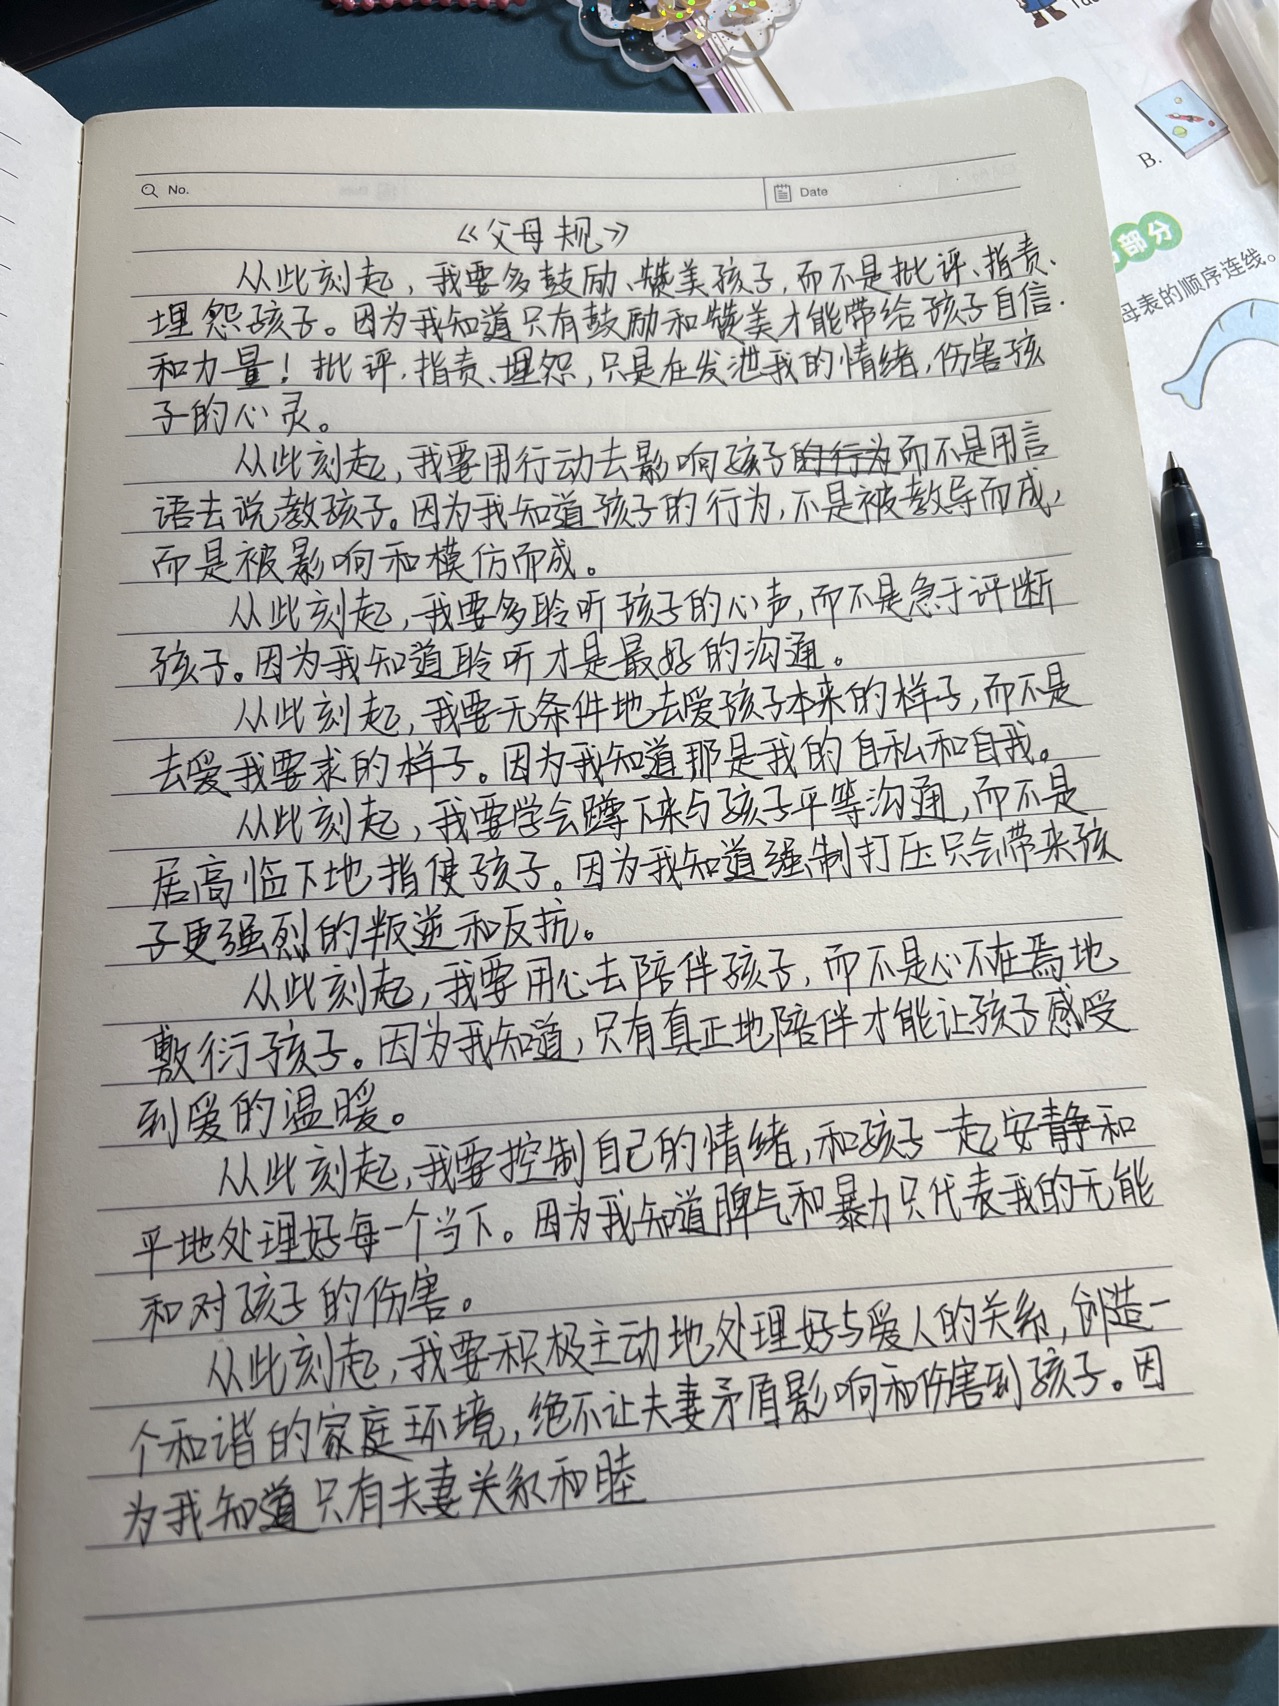 No.
Date
《父母规》
从此刻起，我要多鼓励、赞美孩子，而不是批评、指责、
埋怨孩子。因为我知道只有鼓励和赞美才能带给孩子自信
和力量！批评、指责、埋怨，只是在发泄我的情绪，伤害孩
子的心灵。
从此刻起，我要用行动去影响孩子的行为而不是用言
语去说教孩子。因为我知道孩子的行为，不是被教导而成，
而是被影响和模仿而成。
从此刻起，我要多聆听孩子的心声，而不是急于评断
孩子。因为我知道聆听才是最好的沟通。
从此刻起，我要无条件地去爱孩子本来的样子，而不是
去爱我要求的样子。因为我知道那是我的自私和自我。
从此刻起，我要学会蹲下来与孩子平等沟通，而不是
居高临下地指使孩子。因为我知道强制打压只会带来孩
子更强烈的叛逆和反抗。
从此刻起，我要用心去陪伴孩子，而不是心不在焉地
敷衍孩子。因为我知道，只有真正地陪伴才能让孩子感受
到爱的温暖。
从此刻起，我要控制自己的情绪，和孩子一起安静和
平地处理好每一个当下。因为我知道脾气和暴力只代表我的无能
和对孩子的伤害。
从此刻起，我要积极主动地处理好与爱人的关系，创造一
个和谐的家庭环境，绝不让夫妻矛盾影响和伤害到孩子。因
为我知道只有夫妻关系和睦
B.
部分
母表的顺序连线。